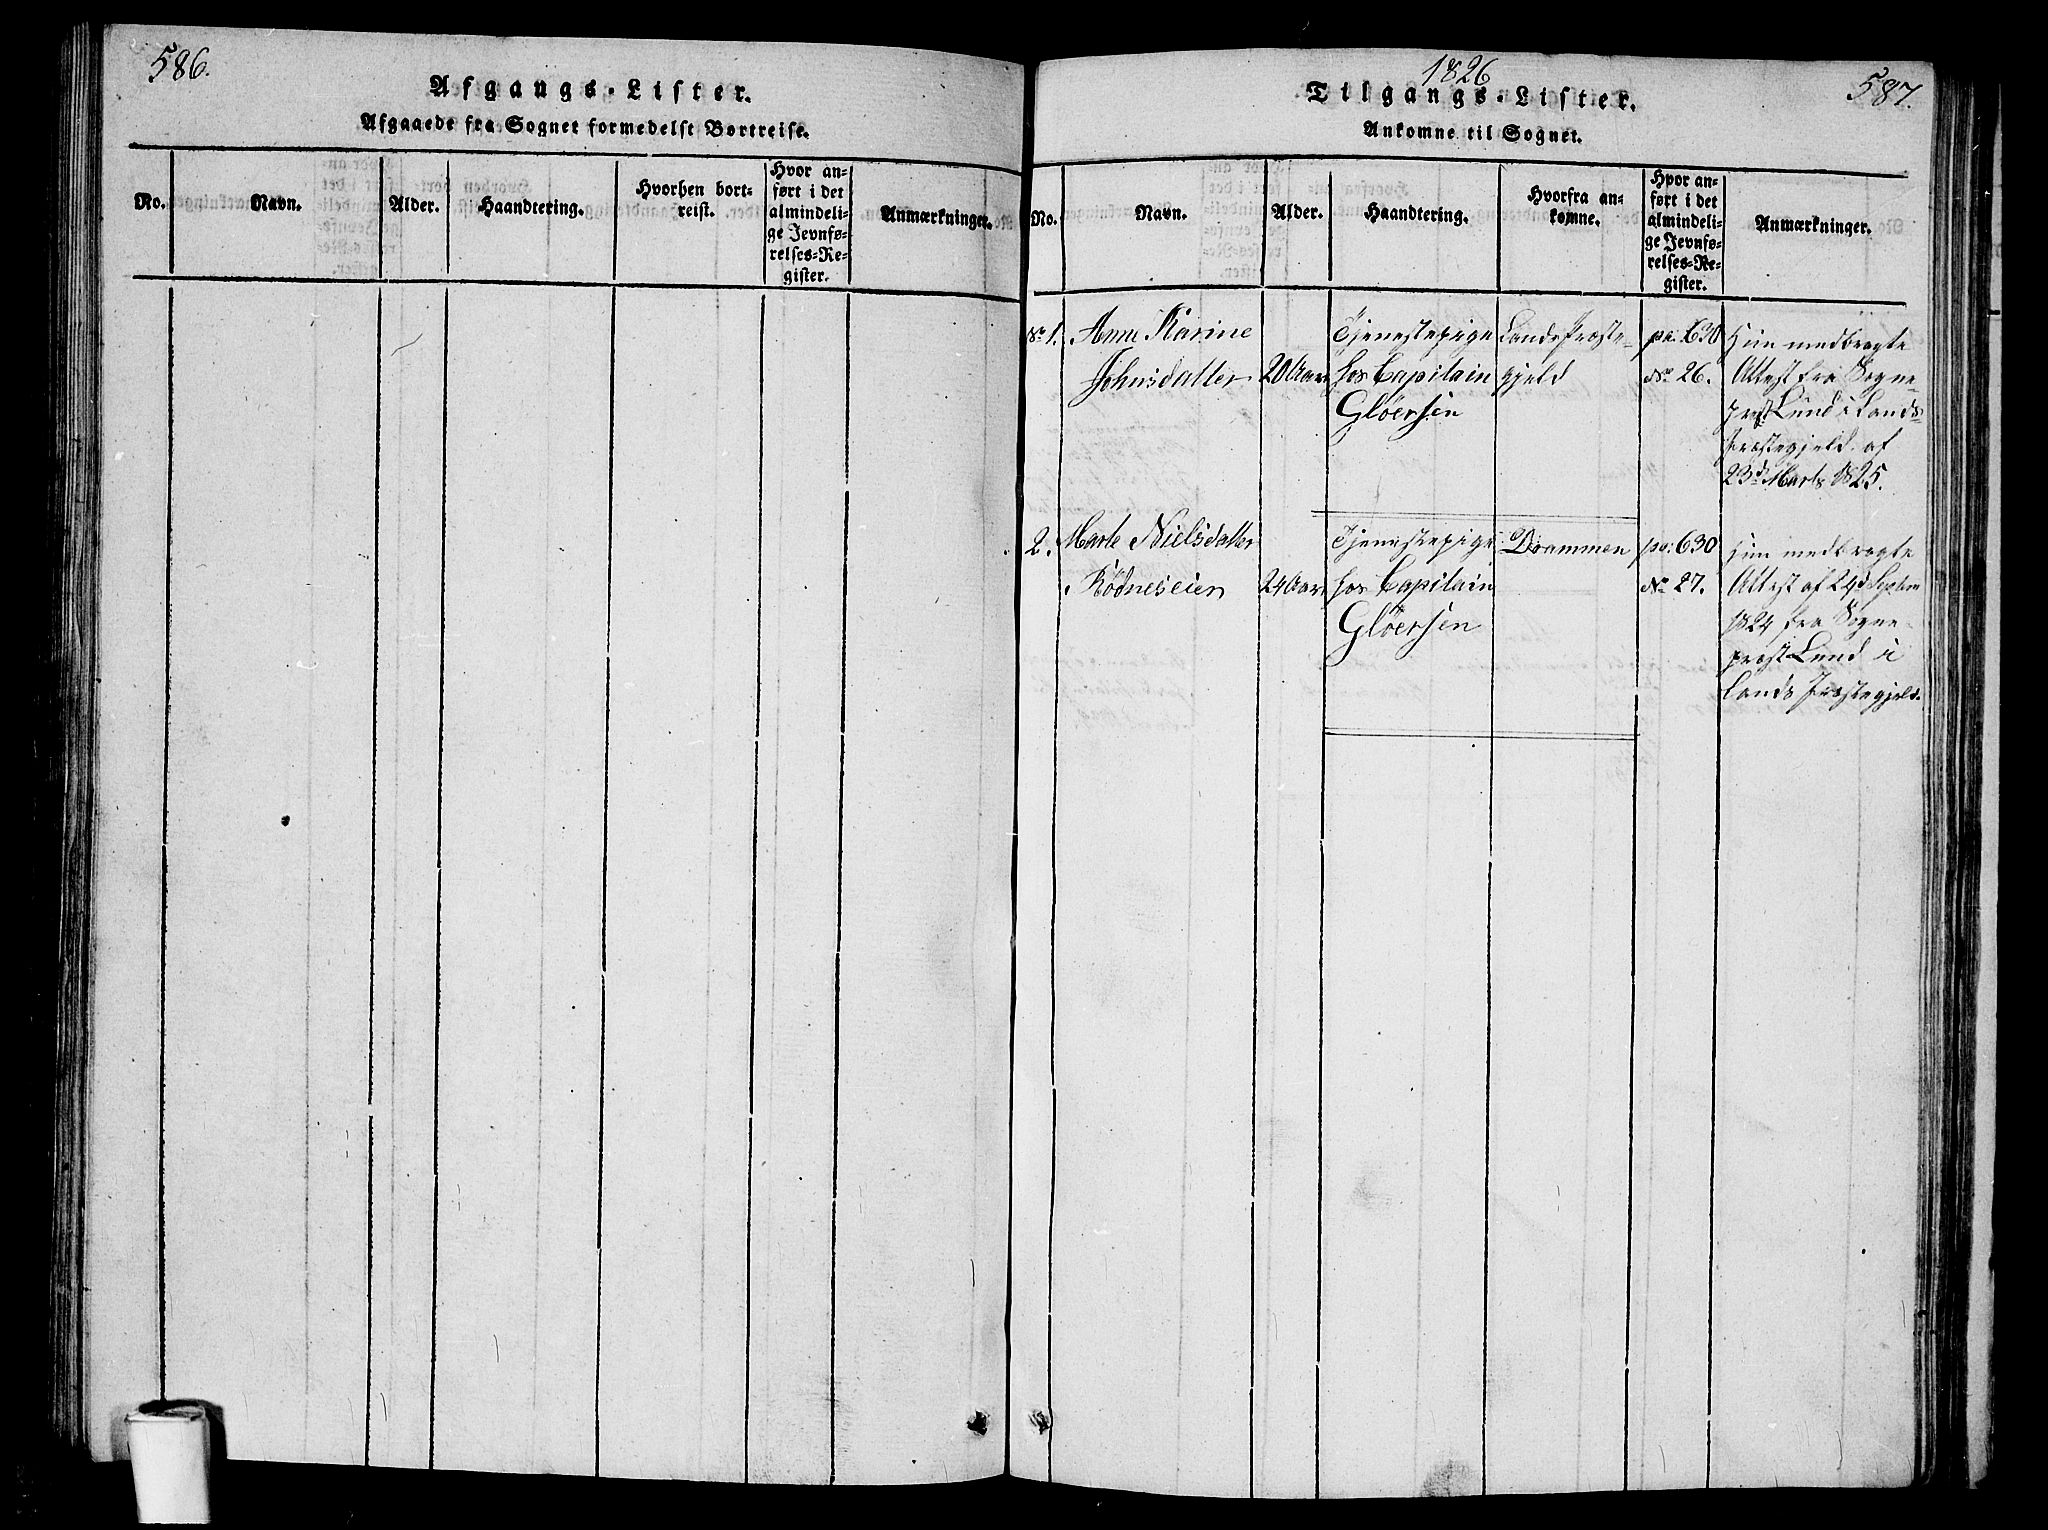 586.
Afgangs-Lister.
Afgaaede fra Sognet formedelst Bortreise.
No.
Navn.
Alder.
Haandtering.
Hvorhen bort-
reist.
Hvor an-
ført i det
almindeli-
ge Jevnfø-
relses-Re-
gister.
Anmærkninger.
1826
587.
Tilgangs-Lister.
Ankomne til Sognet.
No.
Navn.
Alder.
Haandtering.
Hvorfra an-
komne.
Hvor an-
ført i det
almindeli-
ge Jevnfø-
relses-Re-
gister.
Anmærkninger.
No 1.
Anne Karine
Johnsdatter
20 Aar
Tjenestepige
hos Capitain
Gløersen
Lands Præste-
gjeld
pa. 630
No 26.
Hun medbragte
Attest fra Sogne-
præst Lund i Lands
Præstegjeld af
23d Marts 1825.
2.
Marte Nielsdatter
Rödneseien
24 Aar
Tjenestepige
hos Capitain
Gløersen
Drammen
pa: 630
No 27.
Hun medbragte
Attest af 24d Septem
1824 fra Sogne-
præst Lund i
Lands Præstegjeld.